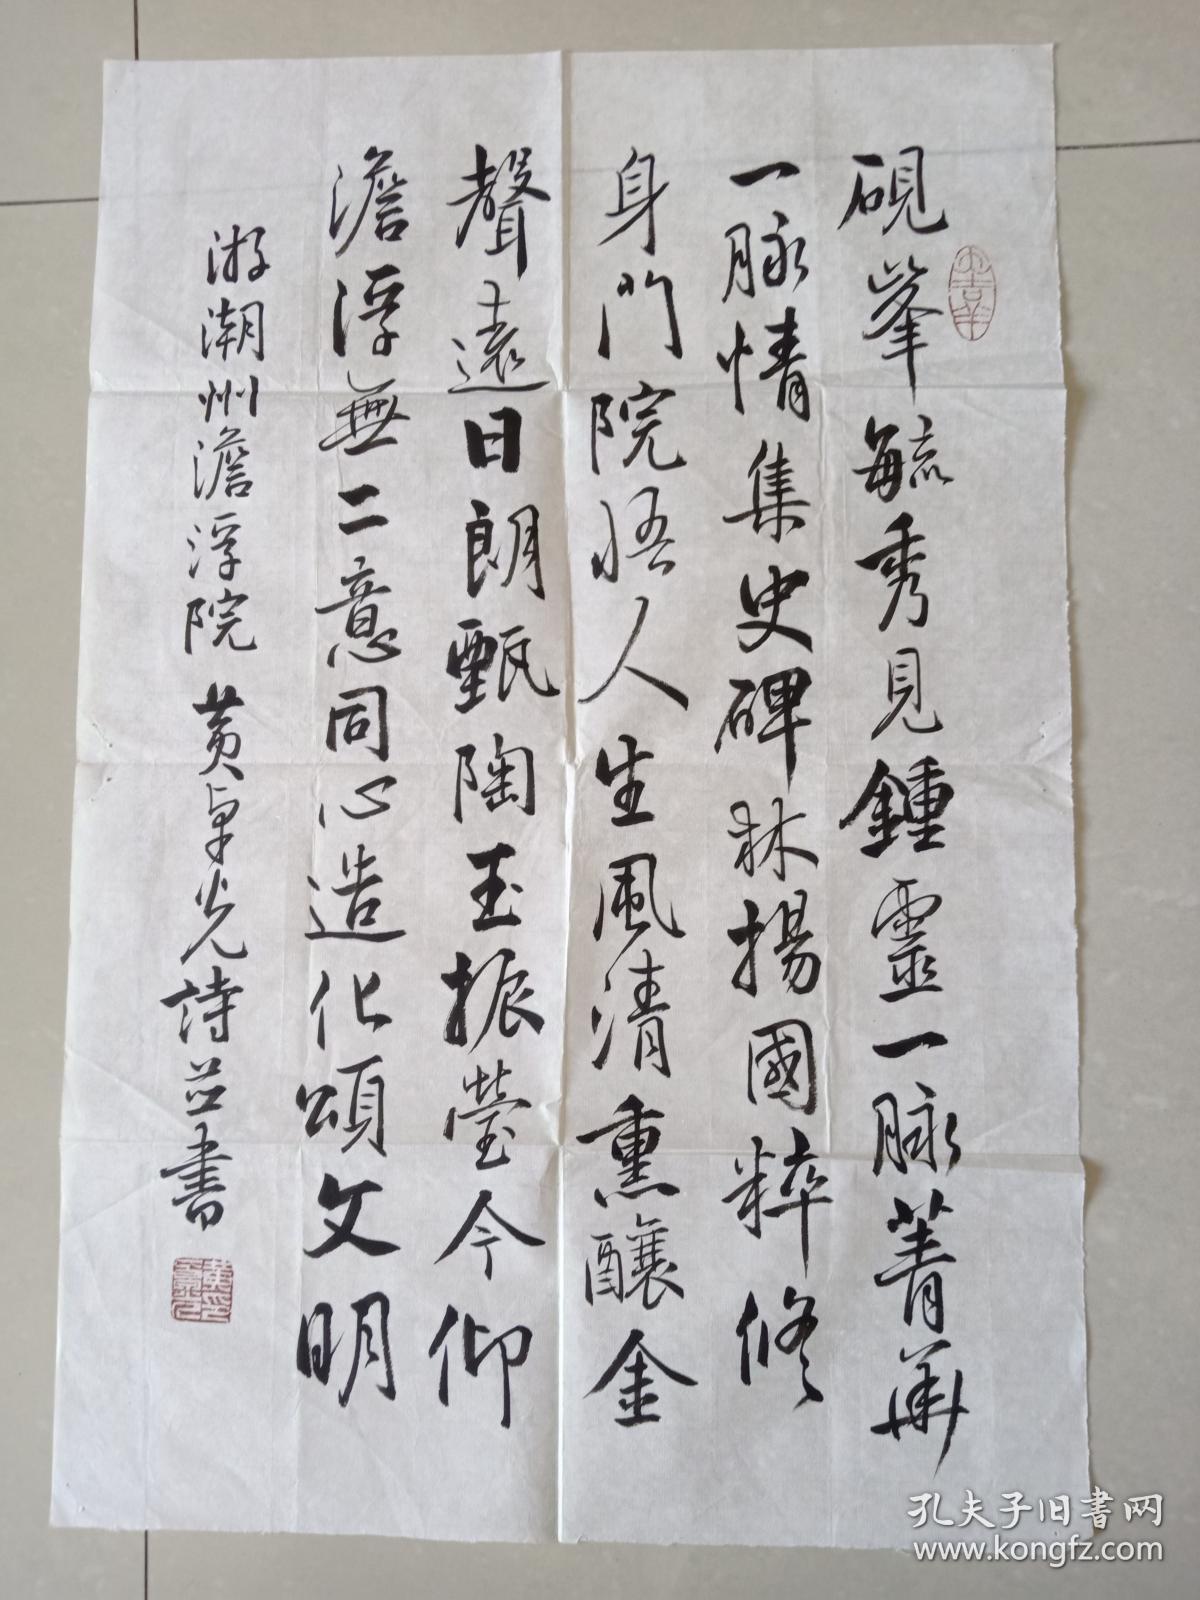 硯峯毓秀見鍾靈一脉菁華
一脉情集史碑林揚國粹修
身門院悟人生風清熏釀金
聲遠日朗甄陶玉振瑩今仰
澹浮無二意同心造化頌文明
游潮州澹浮院 黄卓光詩並書
孔夫子旧書网
www.kongfz.com